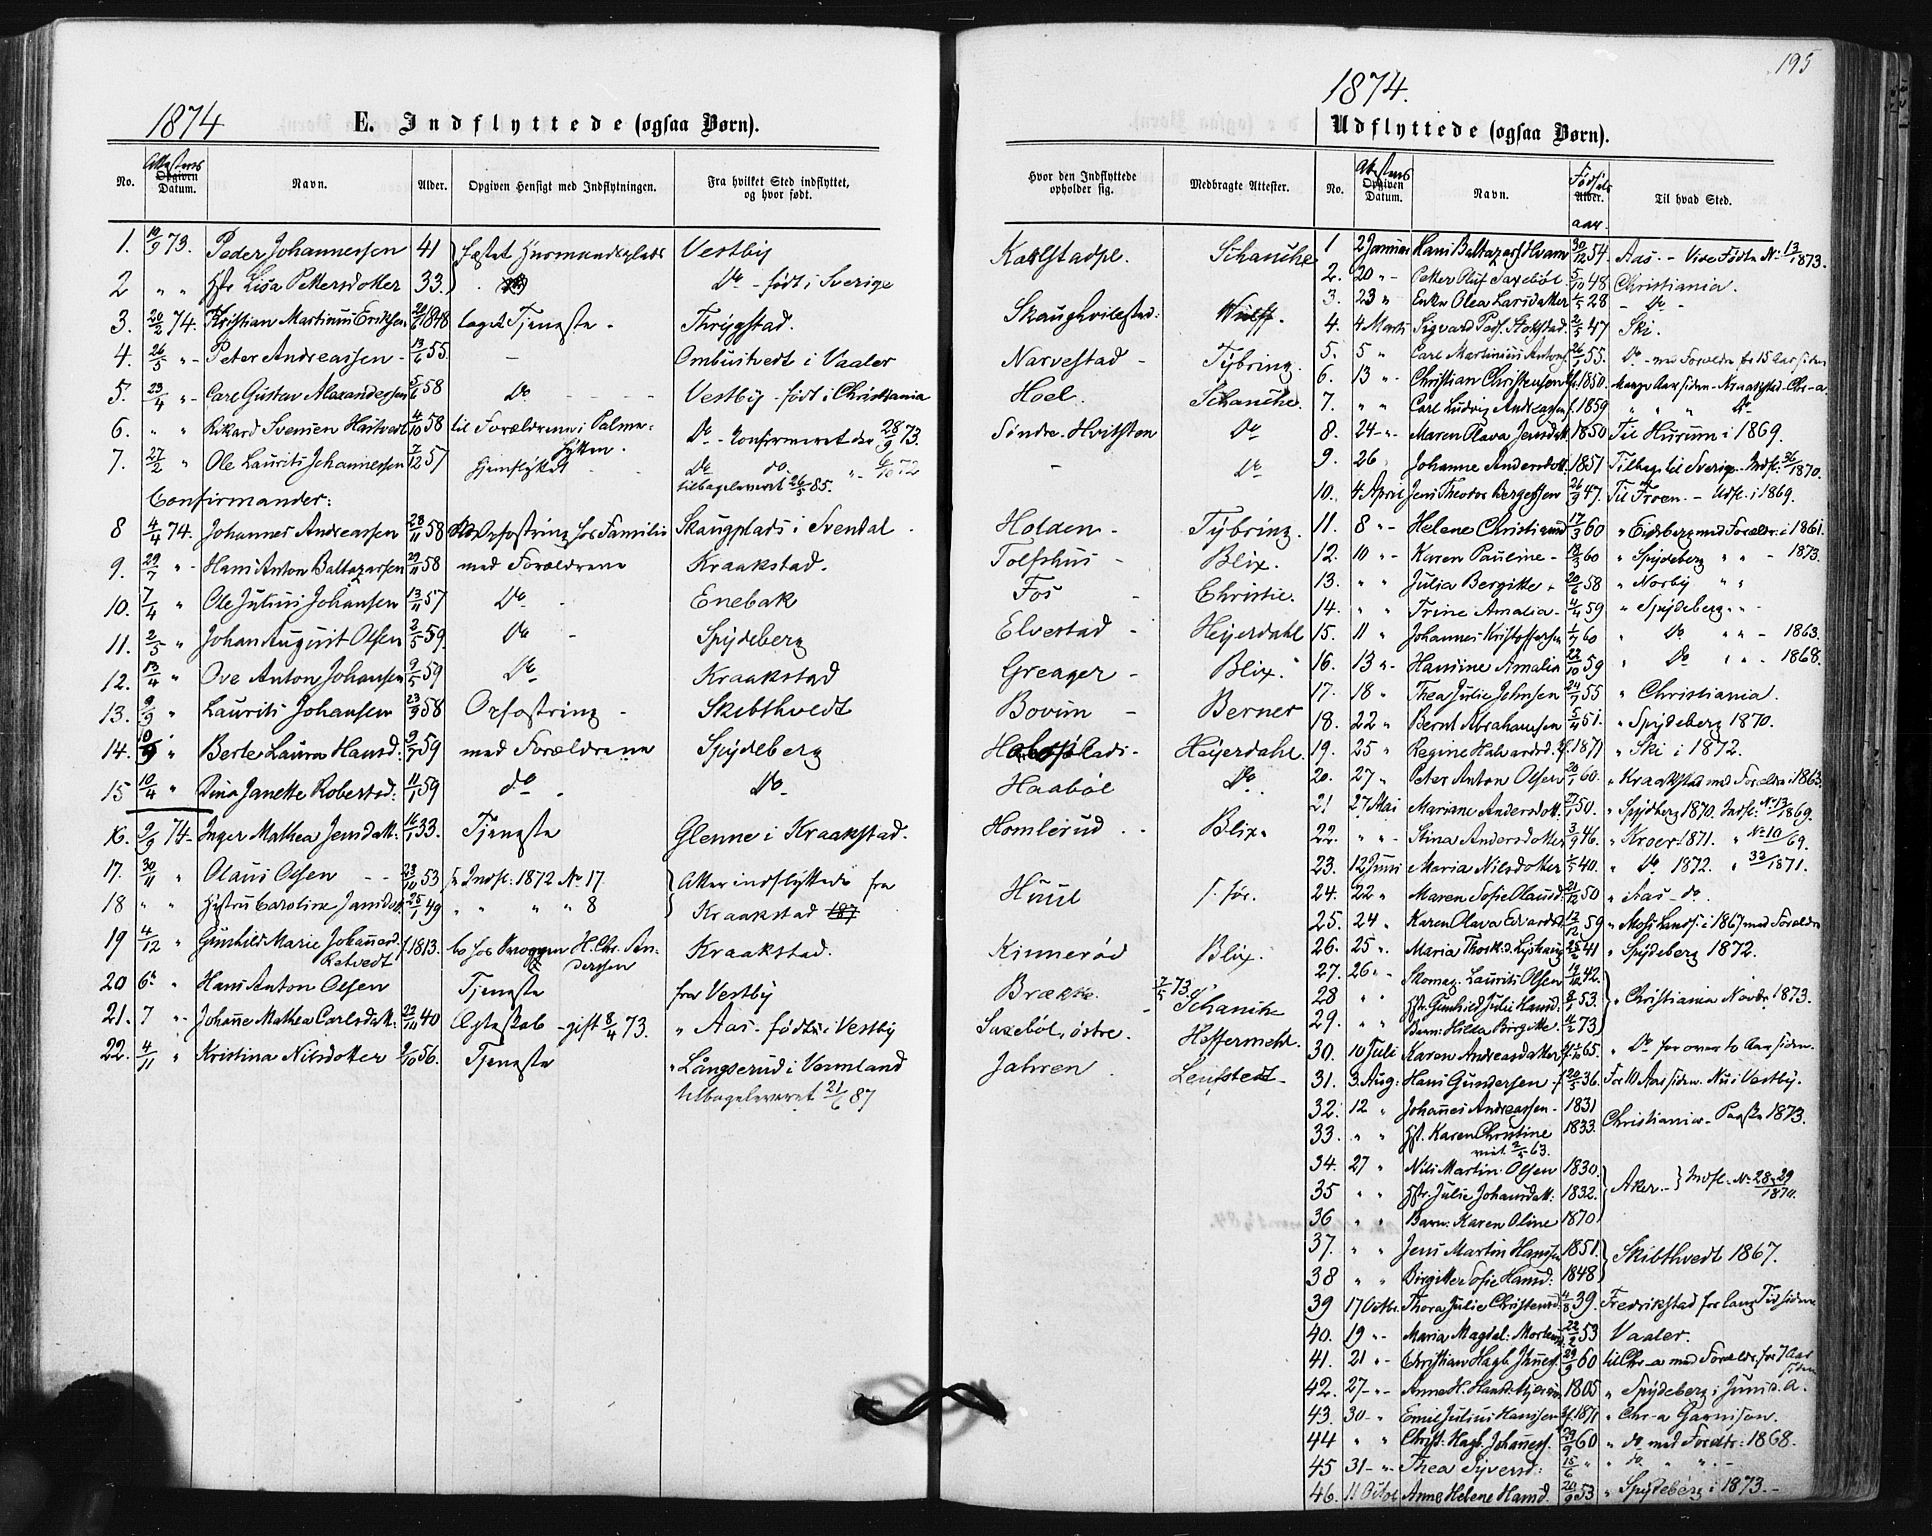 195
1874
E. Indflyttede (ogsaa Børn).
1874.
Udflyttede (ogsaa Børn).
No. Attestens Opgiven Datum. Navn. Alder. Opgiven Hensigt med Indflytningen. Fra hvilket Sted indflyttet, og hvor født. Hvor den Indflyttede opholder sig. Medbragte Attester.
1. 10/9 73. Peder Johannessen 41 Fæstet Huusmandsplads Vestby Karlstadpl. Schanche
2 " " Lisa Pettersdotter 33. Do - født i Sverige
3. 20/2 74. Kristian Martinius Eriksen 1848 taget Tjeneste - Thrygstad. Wulff.
4. 26/5 " - Peter Andreassen - 13/6 55. - i Vaaler Narvestad - Tybring.
5. 23/4 " - Carl Gustav Alexandersen 5/6 58 Do - - - Vestby - født i Christiania Hoel. Schanche.
6. " " Rikard Svensen 4/10 58 til Forældrene i Do - Confirmeret der 28/9 73. Søndre Hvitsten Do
7. 27/2 " Ole Laurits Johannessen 7/12 57 hjemflyttet Do do. " - 6/10 72 - Do
tilbageleveret 26/5 85.
Confirmander:
8 4/4 74. Johannes Andreassen 23/11 58 hos Familie Skaugplads i Svendal Holden - Tybring.
9. 29/7 " - Hans Anton Baltazarsen 29/11 58 med Forældrene Kraakstad. Tolfshus - Blix.
10. 7/4 " Ole Julius Johansen 13/11 57 Do - Enebak Fos - Christie.
11. 2/5 " Johan August Olsen 2/5 59. Do - Spydeberg Elvestad - Heyerdahl
12. 13/4 " Ove Anton Johansen 9/5 59 Do Kraakstad Greager - Blix.
13. 9/9 " Laurits Johansen 23/9 58 Opfostring - Skibthvedt Bovim - Berner
14. 10/9 " Berte Laura Hansd: 2/7 59 med Forældrene Spydeberg Heyerdahl.
15 10/4 " Janette Robertsd: 11/1 59 do - Do - Haabøl Do
16. 9/9 74 - Inger Mathea Jensdatt: 16/1 33. Tjeneste Glenne i Kraakstad. Homlerud - Blix.
17. 30/11 " Olaus Olsen - - 23/10 53 Indfl: 1872 No 17. Atter indflyttede fra Huul s. før.
18 " " Hustru Caroline Jansdatt 25/1 49 " " " " 8 Kraakstad
19 4/12 " Gunhild Marie Johannesd. Retvedt f. 1813. bo hos H. Chr. Anderssen Kraakstad. Kinnerød Blix.
20 6te " Hans Anton Olsen Tjeneste fra Vestby Brække. 2/5 73. Schanche
21. 7 " - Johanne Mathea Carlsdatt: 22/11 40 Ægteskab - gift 8/4 73. " Aas - født i Vestby Saxebøl, østre. Heffermehl.
22. 4/11 " Kristina Nilsdotter 9/10 56. Tjeneste " Långserud i Vermland Jahren. -
tilbageleveret 21/6 87
No. Attestens Opgiven Datum. Navn. Fødsels Alder. aar. Til hvad Sted.
1 2 Januar Hans Baltazars. Hvam 30/12 54. Aas - Vide Fødte No: 13/1873.
2. 20 " - Petter Oluf Saxebøl. 5/10 48 Christiania.
3. 23 " Enke Olea Larsdatter 28 - Do -
4. 4 Marts Sigvard Ped. 2/5 47 Ski.
5. 5 " Carl Martinius Antons. 26/1 55. Do - med Forældre for 15 Aar siden
6. 13 " - Christian Christensen f. 1850. Mange Aar siden - Kraakstad - Chr-a
7. " " Carl Ludvig Andreassen f. 1859 " " " Do
8. 24 - " - Maren Olava Jensdatt. 1850 Til Hurum i 1869.
9. 26 Johanne Andersdott: 1851 Tilbage til Sverige - Indfl: 36/1870.
10. 4 April Jens Theodor Børgessen 26/9 47 Til Froen. - Udfl. i 1869.
11. 8 " - Helene Christiansd 17/3 60 " Eidsberg med Forældr. i 1861.
12. 10 " - Karen Pauline - 18/3 60 " Spydeberg " " - 1873.
13. " " Julia Bergitte - 20/6 58 " Norby " "
14. " " Trine Amalia - 4/4 59 " Spydeberg " -
15. 11 " Johannes Kristoffersen 1/7 60 " Do " " - 1863.
16. 13 " - Hansine Amalia 22/10 59 " Do " " - 1868.
17. 18 " Thea Julie Johnsen 24/7 55 " Christiania.
18. 22 " Bernt Abrahamsen 5/4 51. " Spydeberg 1870.
19. 25 " Regine Halvorsd. f. 1871 " Ski i 1872.
20. 27 " Peter Anton Olsen 20/1 60. " Kraakstad med Forældre i 1863
21 27 Mai Mariane Andersdott. 27/1 50. " Spydberg 1870. Indfl: No 13/1869.
22. " " - Stina Andersdotter 3/9 46. " Kroer 1871. " No 10/69.
23. 12 Juni Maria Nilsdotter 2/5 40. " Do 1872. " 32/1871.
24. 22 " Maren Sofie Olausd. 21/12 50 " Aas - do.
25. 24 " Karen Olava Edvardsd. 17/12 59 " Moss Lands. i 1867 med Forældre
26. 25 " . Maria Thork.d. 25/2 41 " Spydeberg 1872.
27. 26 " - Skomag. Laurits Olsen 19/12 42. " Christiania Novbr. 1873.
28 " " Gunhild Julie Hansd: 8/1 53.
29. " " Barn: Hilda Birgitte - 4/2 73
30. 10 Juli Karen Andreasdatter 2/10 65. " Do for over to Aar siden.
31. 3. Aug: Hans Gundersen - f. 20/5 36. For 10 Aar siden. Nu i Vestby.
32. 12 " Johannes Andreassen - 1831 Christiania - Paaske 1873.
33. " " Hst. Karen Christine 1833.
viet 2/5 63.
34. 27 " Nils Martin Olsen 1830. Aker. - Indfl. No 28 & 29/1870.
35 " " Hstr. Julie Johansdatt: 1832.
36 " " Barn: Karen Oline 1870
37. " " Jens Martin Hansen 1851. Skibthvedt 1867.
38 " " Birgitte Sofie Hansd: 1848
39 17 Octbr. Thora Julie Christensd. 4/8 39. Fredrikstad for lang Tid siden
40. 19 " - Maria Magdal: Mortensd 22/2 53 Vaaler.
41. 21 " - Christian Hagb. Johannes. 29/9 60 til Chr-a med Forældr. for 7 Aar siden
42. 27 - " - Anne H. Hansd. 1805 " Spydeberg i Juni d. A.
43. 30 - " Emil Julius Hanssen f. 1871 " Chr-a Garnison.
44 " " Christ: Hagb. Johannes. 29/9 60 " do med Forældr: 1868.
45 31 - " - Thea Syversd: 15/6 " " do " " -
46. 11 Octob Anne Helene Hansd. 20/9 53 " Spydeberg i 1873 -